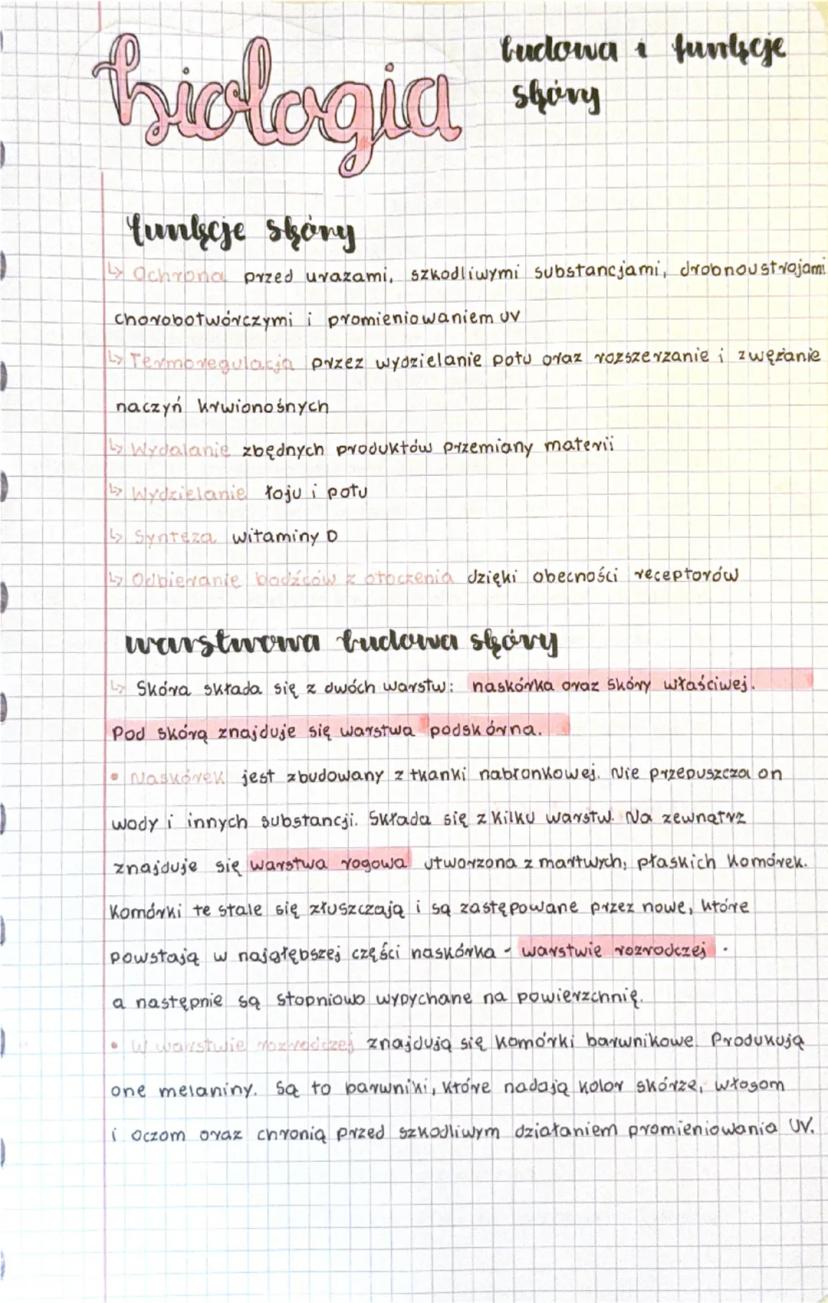 biologia
budowa i funkcje
skóry
funkcje skóry
↳ Ochrona przed urazami, szkodliwymi substancjami, drobnoustrojami
chorobotwórczymi i promieniowaniem UV
↳ Termoregulacja przez wydzielanie potu oraz rozszerzanie i zwężanie
naczyń krwionośnych
↳ Wydalanie zbędnych produktów przemiany materii
↳ Wydzielanie łoju i potu
↳ Synteza witaminy D
↳ Odbieranie bodźców z otoczenia dzięki obecności receptorów
warstwowa budowa skóry
↳ Skóra składa się z dwóch warstw: naskórka oraz skóry właściwej.
Pod skórą znajduje się warstwa podskórna.
• Naskórek jest zbudowany z tkanki nabłonkowej. Nie przepuszcza on
wody i innych substancji. Składa się z kilku warstw. Na zewnątrz
znajduje się warstwa rogowa utworzona z martwych, płaskich komórek.
Komórki te stale się złuszczają i są zastępowane przez nowe, które
powstają w najgłębszej części naskórka - warstwie rozrodczej.
a następnie są stopniowo wypychane na powierzchnię.
• W warstwie rozrodczej znajdują się komórki barwnikowe. Produkują
one melaniny. Są to barwniki, które nadają kolor skórze, włosom
i oczom oraz chronią przed szkodliwym działaniem promieniowania UV.